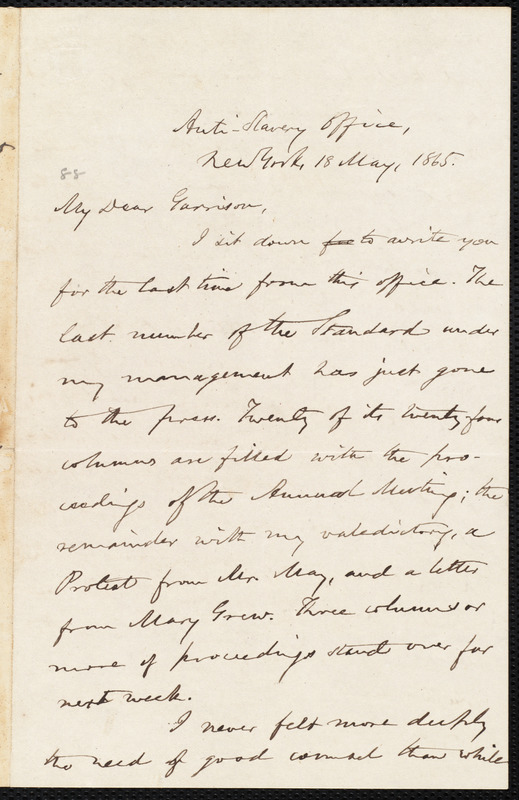 Anti-Slavery Office,
New York, 18 May, 1865.
88
My Dear Garrison,
I sit down to write you
for the last time from this office. The
last number of the Standard under
my management has just gone
to the press. Twenty of its twenty four
columns are filled with the pro-
ceedings of the Annual Meeting; the
remainder with my valedictory, a
Protest from Mr. May, and a letter
from Mary Grew. Three columns or
more of proceedings stand over for
next week.
I never felt more deeply
the need of good counsel than while